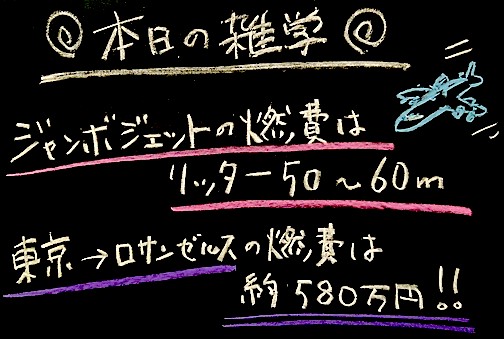 ◎本日の雑学◎
ジャンボジェットの燃費は
リッター50～60m
東京→ロサンゼルスの燃費は
約580万円!!